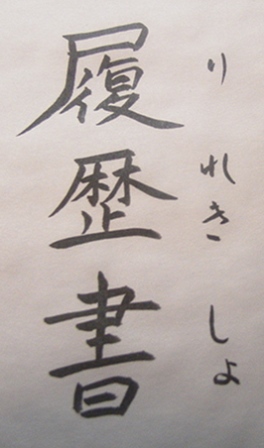 履歴書
りれきしょ